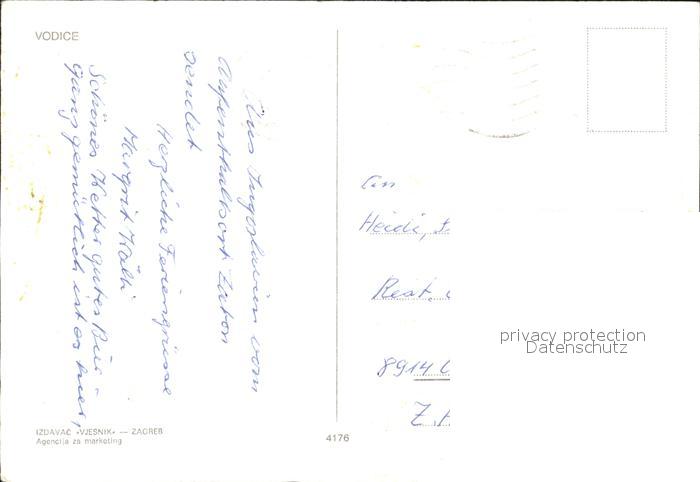 VODICE
Aus Jugoslavien vom
Aufenthaltsort Zaton
sendet
Herzliche Feriengrüsse
Margrit Kälti
Schönes Wetter gutes Bus -
Ganz gemütlich ist es hier,
An
Heidi,
Rest.
8914
Z.
privacy protection
Datenschutz
IZDAVAČ »VJESNIK« — ZAGREB
Agencija za marketing
4176